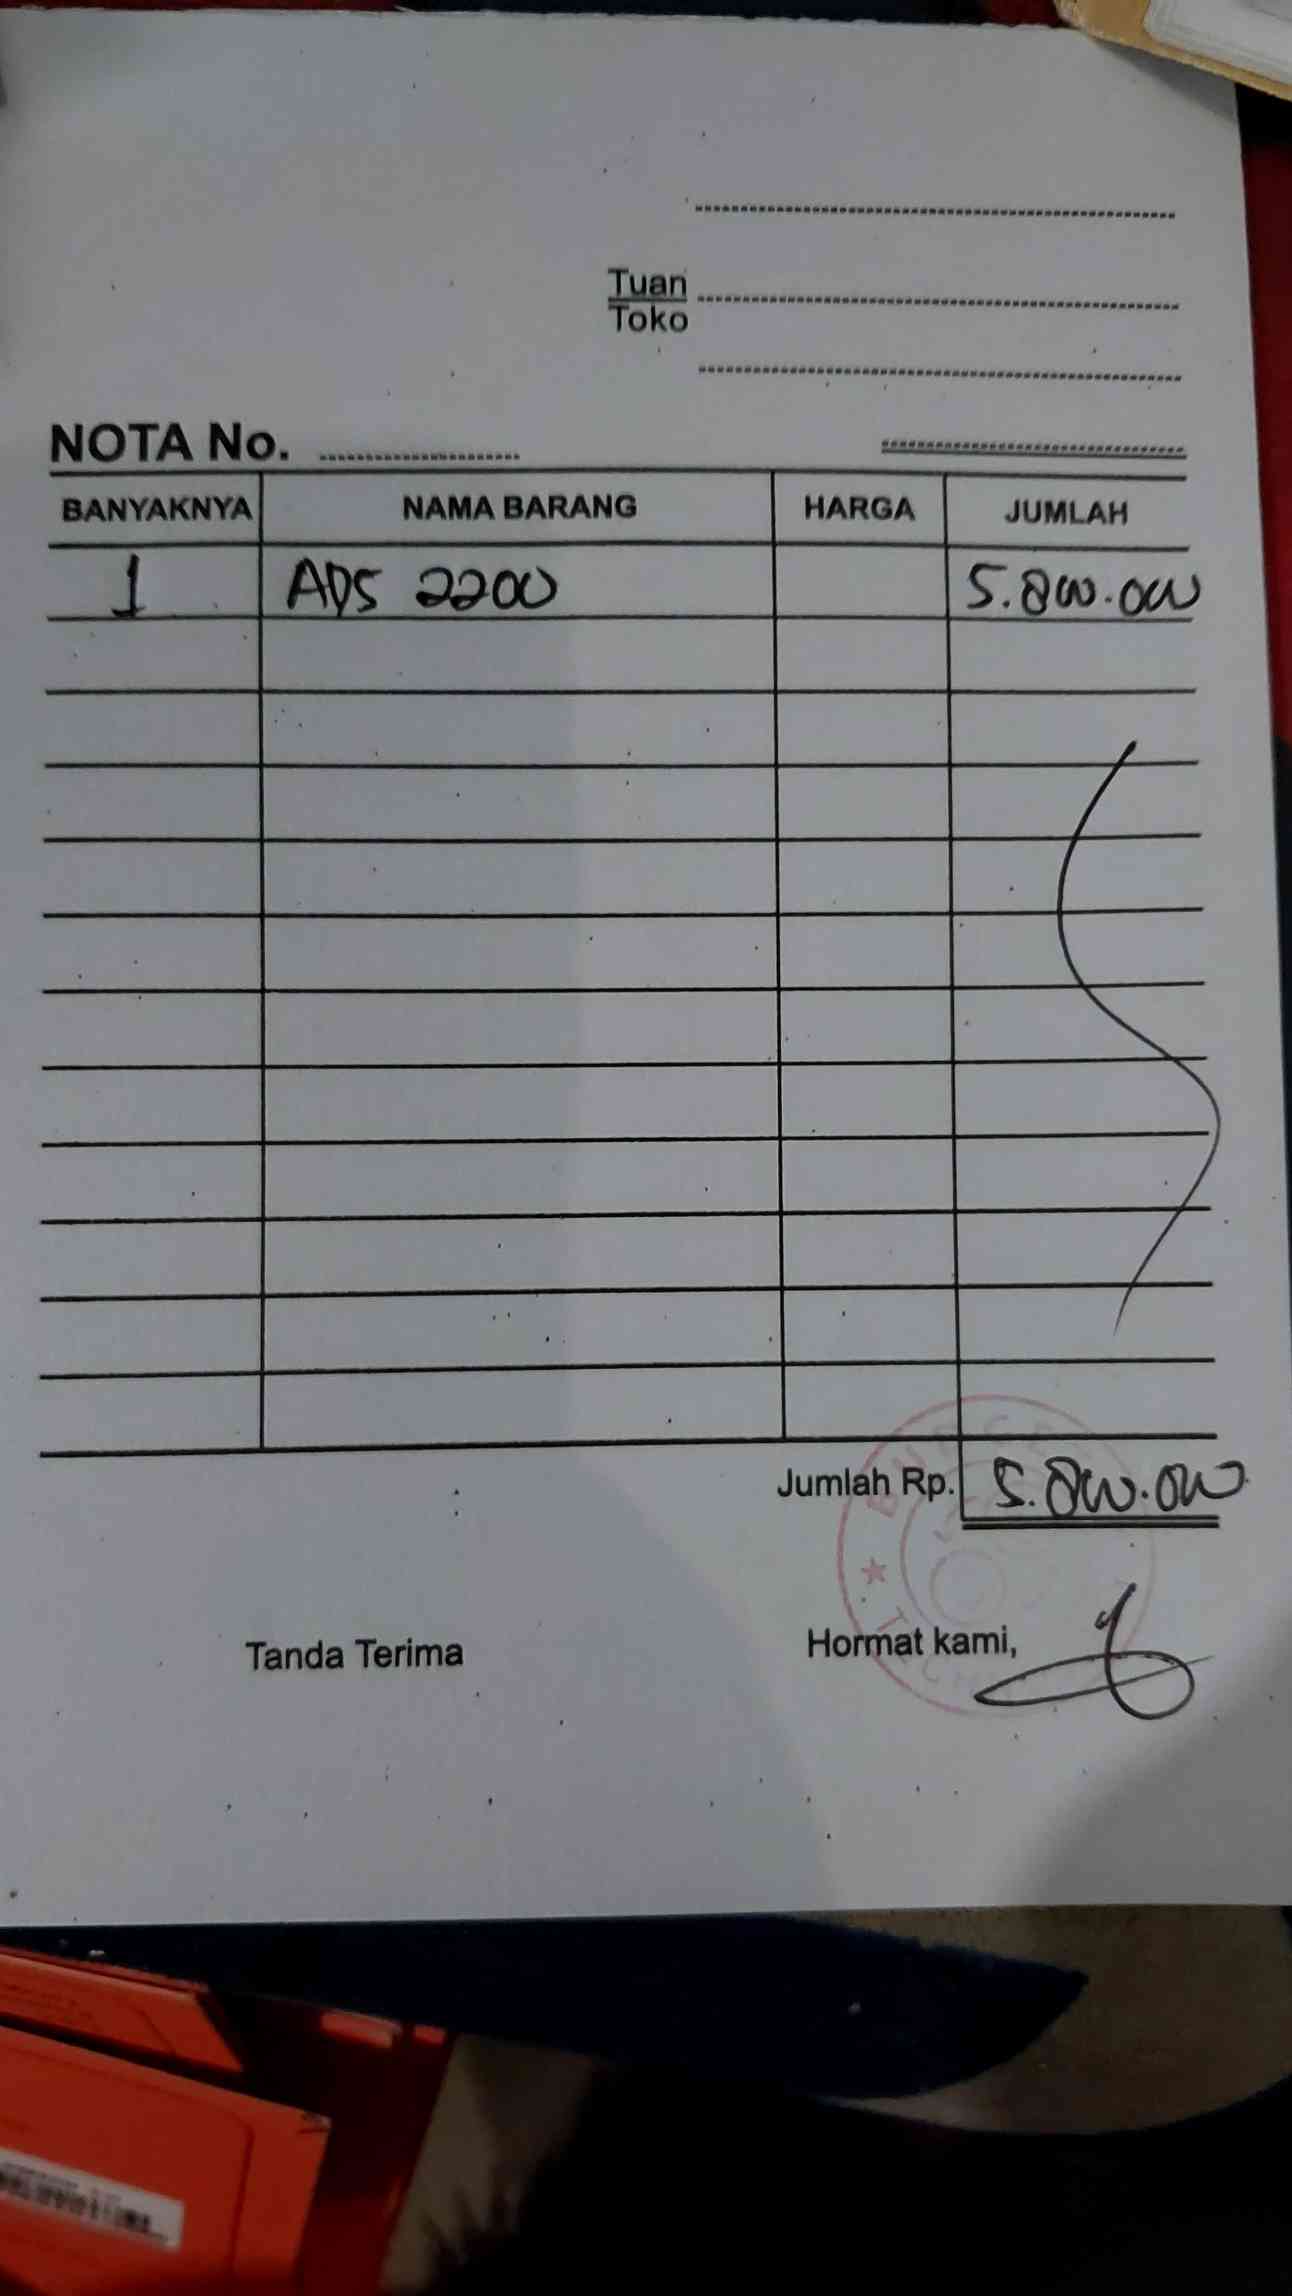 Tuan
Toko
NOTA No.
BANYAKNYA NAMA BARANG HARGA JUMLAH
1 ADS 2200 5.800.000
Jumlah Rp. 5.800.000
Tanda Terima Hormat kami,